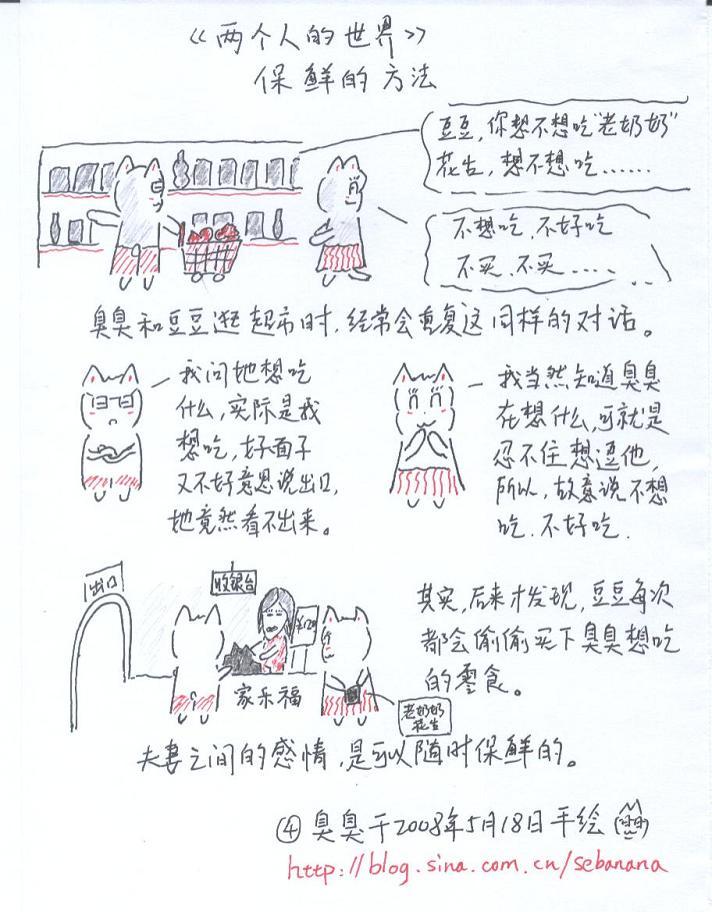 《两个人的世界》
保鲜的方法
豆豆,你想不想吃"老奶奶"
花生,想不想吃......
不想吃、不好吃
不买、不买.....
臭臭和豆豆逛超市时,经常会重复这同样的对话。
我问她想吃
什么,实际是我
想吃,好面子
又不好意思说出口,
她竟然看不出来。
我当然知道臭臭
在想什么,可就是
忍不住想逗他,
所以,故意说不想
吃.不好吃.
出口
收银台
¥120
家乐福
老奶奶
花生
其实,后来才发现,豆豆每次
都会偷偷买下臭臭想吃
的零食。
夫妻之间的感情,是可以随时保鲜的。
④ 臭臭于2008年5月18日手绘
http://blog.sina.com.cn/sebanana